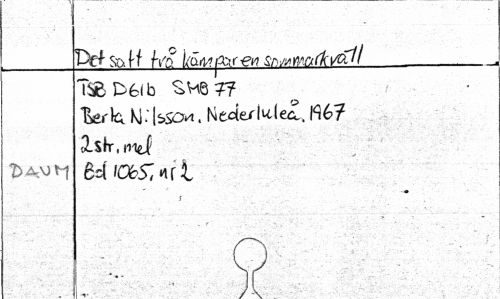 Det satt två kämpar en sommarkväll
TSB D61b SMB 77
Berta Nilsson, Nederluleå, 1967
2 str, mel
DAUM Bd 1065, nr 2